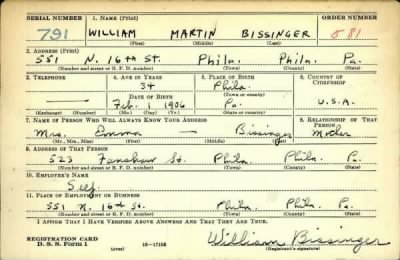 SERIAL NUMBER 1. NAME (Print) ORDER NUMBER
791 WILLIAM MARTIN BISSINGER 581
(First) (Middle) (Last)
2. ADDRESS (Print)
551 N. 16th St. Phila. Phila. Pa.
(Number and street or R. F. D. number) (Town) (County) (State)
3. TELEPHONE 4. AGE IN YEARS 5. PLACE OF BIRTH 6. COUNTRY OF CITIZENSHIP
34 Phila.
DATE OF BIRTH (Town or county)
— Feb. 1 1906 Pa. U.S.A.
(Exchange) (Number) (Mo.) (Day) (Yr.) (State or country)
7. NAME OF PERSON WHO WILL ALWAYS KNOW YOUR ADDRESS 8. RELATIONSHIP OF THAT PERSON
Mrs. Emma — Bissinger Mother
(Mr., Mrs., Miss) (First) (Middle) (Last)
9. ADDRESS OF THAT PERSON
523 Fanshaw St. Phila. Phila. Pa.
(Number and street or R. F. D. number) (Town) (County) (State)
10. EMPLOYER'S NAME
Self
11. PLACE OF EMPLOYMENT OR BUSINESS
551 N. 16th St. Phila. Phila. Pa.
(Number and street or R. F. D. number) (Town) (County) (State)
I AFFIRM THAT I HAVE VERIFIED ABOVE ANSWERS AND THAT THEY ARE TRUE.
REGISTRATION CARD
D. S. S. Form 1 (over) 16—17105 William Bissinger
(Registrant's signature)